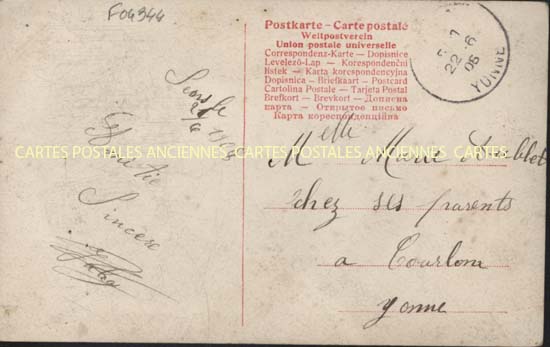 F04344
Postkarte - Carte postale
Weltpostverein
Union postale universelle
Correspondenz-Karte — Dopisnice
Levelező-Lap — Korespondenční
lístek — Karta korespondencyjna
Dopisnica — Briefkaart — Postcard
Cartolina Postale — Tarjeta Postal
Brefkort — Brevkort — Дописна
карта — Открытое письмо
Карта кореспонденційна
22 - 6
YONNE
Sens le
Amitié
Sincère
CARTES POSTALES ANCIENNES CARTES POSTALES ANCIENNES CARTES
Melle Marie
chez ses parents
a Courlon
Yonne